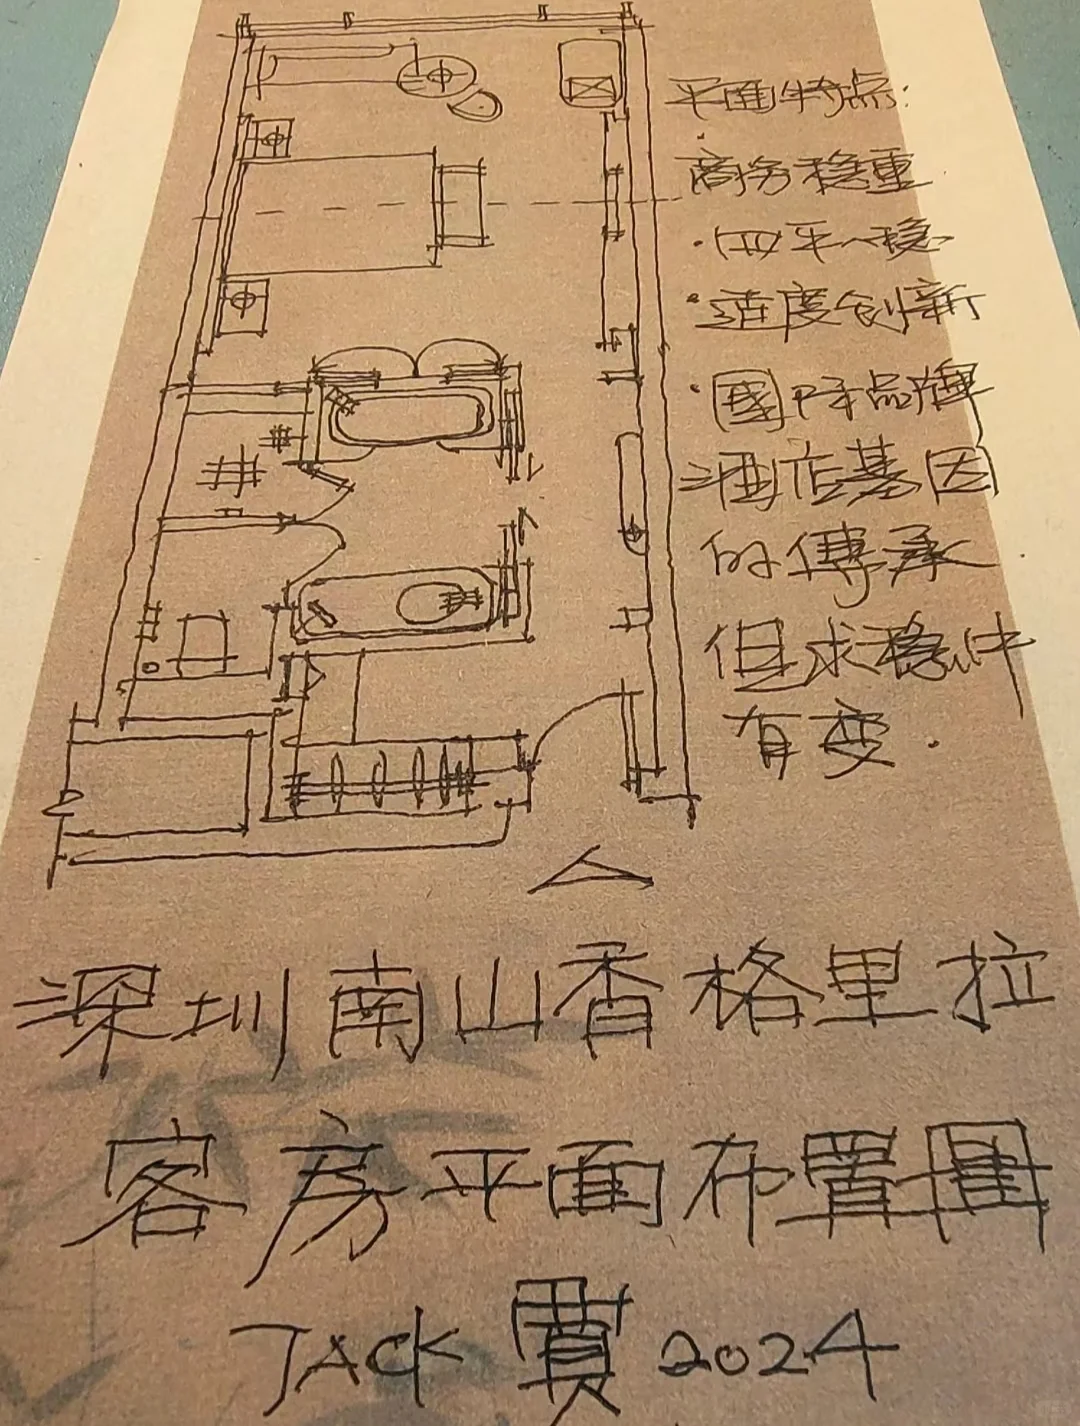 平面特点:
商务稳重
·四平八稳
·适度创新
·國际品牌
酒店基因
的傳承
但求稳中
有变.
深圳南山香格里拉
客房平面布置圖
JACK 賈 2024